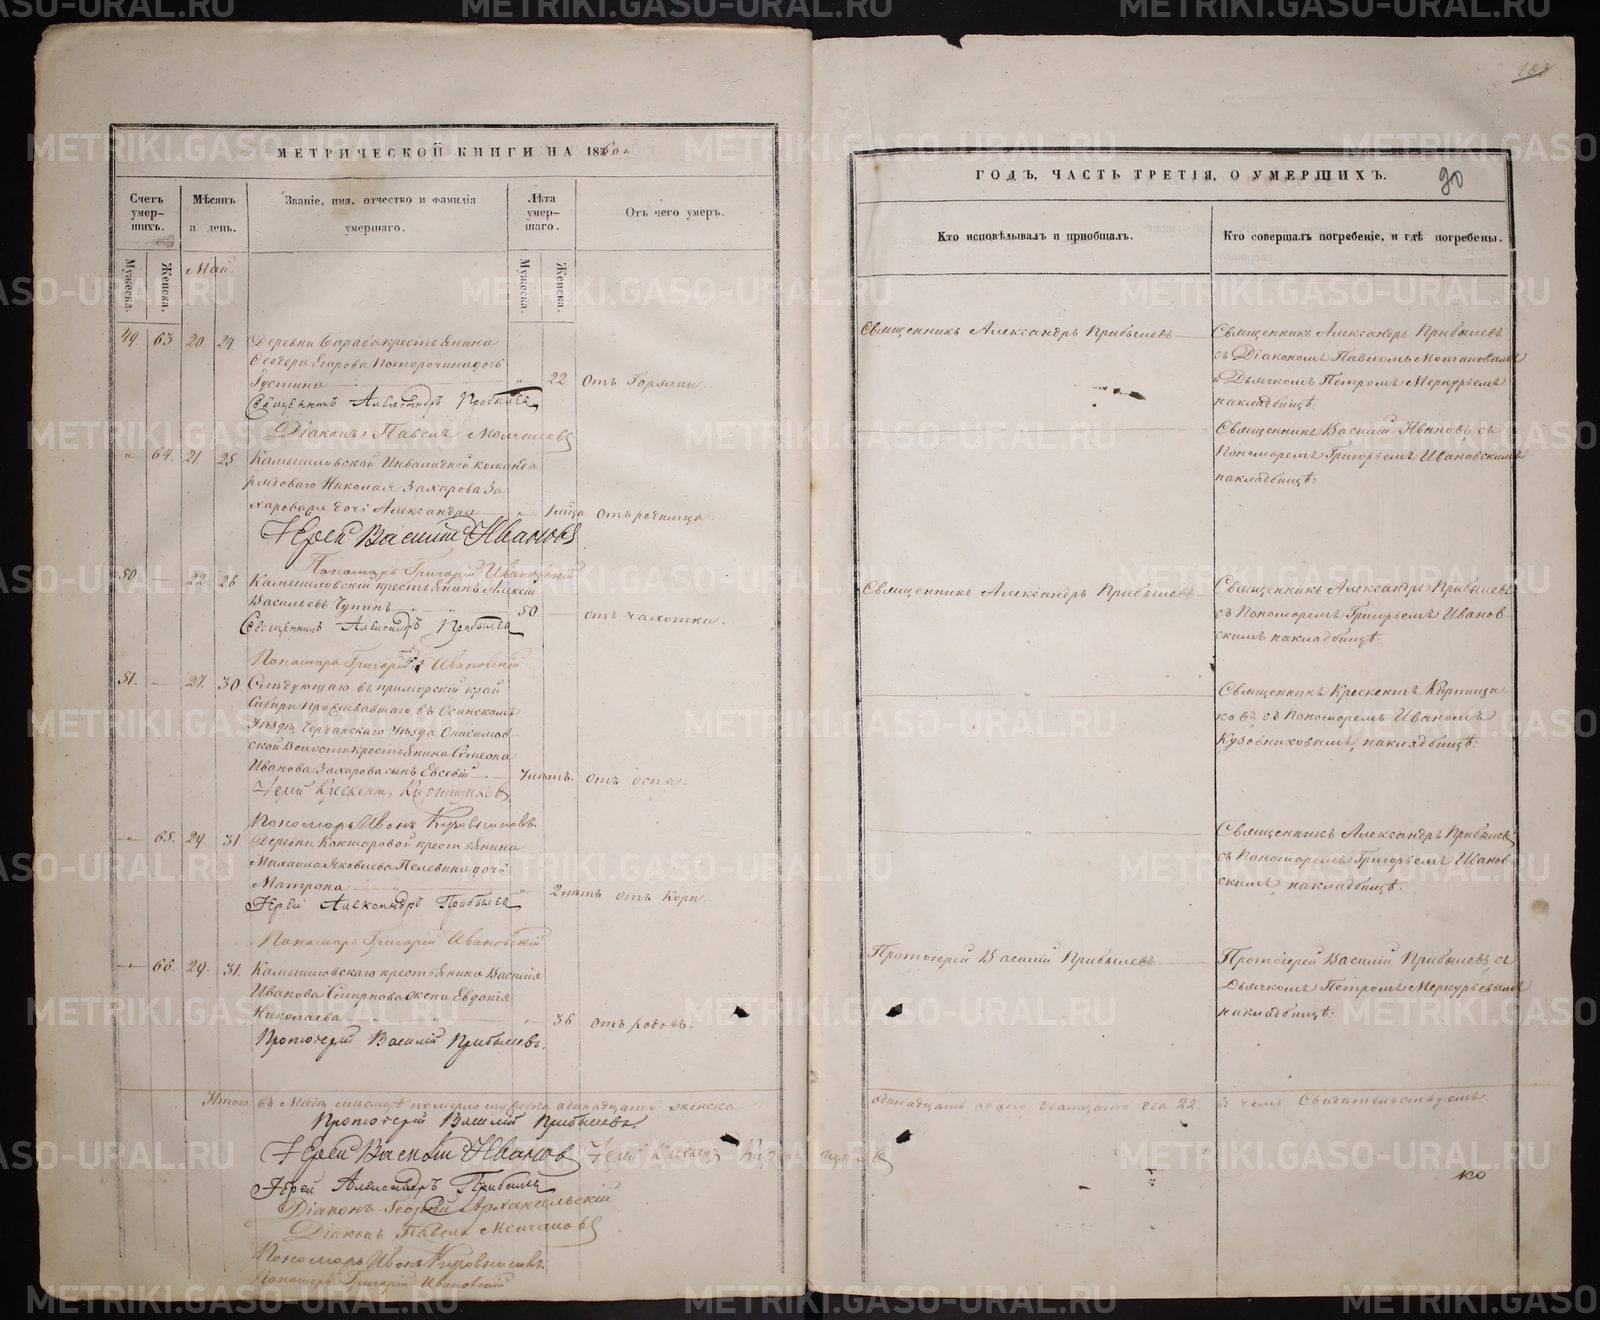 МЕТРИЧЕСКОЙ КНИГИ НА 18
Счетъ умер-шихъ.
Мѣсяцъ и день.
Званіе, имя, отчество и фамилія умершаго.
Лѣта умер-шаго.
Отъ чего умеръ.
Мужеска.
Женска.
Май
Мужеска.
Женска.
49. 63 20 24. Деревни Барабы крестьянина
Ѳеодора Егорова Поторочина дочь
Іустина 22 отъ Горячки.
Священникъ Александръ Прибылевъ
Діаконъ Павелъ Молчановъ
64. 21. 25 Камышловской Инвалидной команды
рядоваго Николая Захарова За
харова дочь Александра 1 мѣсяца отъ родимца.
Іерей Василій Ивановъ
Пономарь Григорій Ивановскій
50 — 22 26 Камышловскій крестьянинъ Алексій
Васильевъ Чупинъ 50 отъ чахотки.
Священникъ Александръ Прибылевъ
Пономарь Григорій Ивановскій
51. — 27. 30 Слѣдующаго въ приморскій край
Сибири Проживавшаго въ Осинскомъ
Уѣздѣ,
ской Волости крестьянина Симеона
Иванова Захарова сынъ Евсевій 7 лѣтъ. отъ оспы.
Іерей Крискентъ Кирпищиковъ
Пономарь Иванъ Кузовниковъ.
65. 29. 31 Деревни Кокшаровой крестьянина
Михаила Яковлева Пелевина дочь
Матрона 2 лѣтъ отъ Кори.
Іерей Александръ Прибылевъ
Пономарь Григорій Ивановскій
66. 29. 31. Камышловскаго крестьянина Василія
Иванова Смирнова жена Евдокія
Николаева 36 отъ родовъ.
Протоіерей Василій Прибылевъ.
Итого въ Маѣ мѣсяцѣ померло мужеска одинадцать женска
Протоіерей Василій Прибылевъ.
Іерей Василій Ивановъ Іерей Крискентъ
Іерей Александръ Прибылевъ
Діаконъ Георгій Архангельскій
Діаконъ Павелъ Молчановъ
Пономарь Иванъ Кузовниковъ.
Пономарь Григорій Ивановскій
103
ГОДЪ, ЧАСТЬ ТРЕТІЯ, О УМЕРШИХЪ.
90
Кто исповѣдывалъ и пріобщалъ.
Кто совершалъ погребеніе, и гдѣ погребены.
Священникъ Александръ Прибылевъ
Священникъ Александръ Прибылевъ
съ Діакономъ Павломъ Молчановымъ
и Дьячкомъ Петромъ Меркурьевымъ
на кладбищѣ.
Священникъ Василій Ивановъ, съ
Пономаремъ Григорьемъ Ивановскимъ
на кладбищѣ:
Священникъ Александръ Прибылевъ
Священникъ Александръ Прибылевъ
съ Пономаремъ Григорьемъ Иванов-
скимъ на кладбищѣ.
Священникъ Крискентъ Кирпищи
ковъ, съ Пономаремъ Иваномъ
Кузовниковымъ, на кладбищѣ:
Священникъ Александръ Прибылевъ
съ Пономаремъ Григорьемъ Иванов-
скимъ, на кладбищѣ.
Протоіерей Василій Прибылевъ
Протоіерей Василій Прибылевъ, съ
Дьячкомъ Петромъ Меркурьевымъ
на кладбищѣ:
одинадцать обоего двадцать два 22. въ чемъ Свидѣтельствуемъ
METRIKI.GASO-URAL.RU